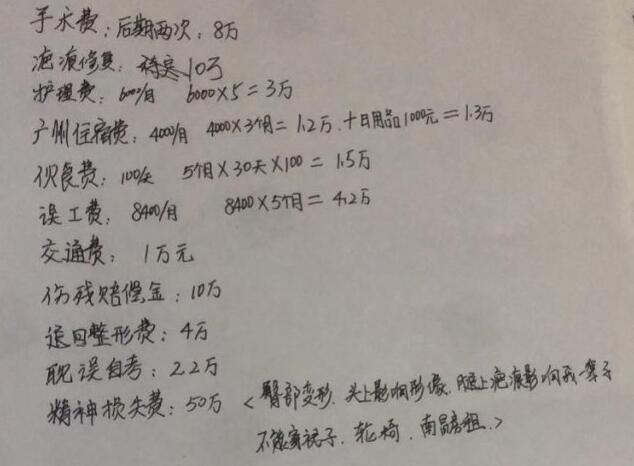 手术费：后期两次：8万
疤痕修复：10万
护理费：6000/月 6000×5=3万
广州住宿费：4000/月 4000×3个月=1.2万.十日用品1000元=1.3万
伙食费：100/天 5个月×30天×100=1.5万
误工费：8400/月 8400×5个月=4.2万
交通费：1万元
伤残赔偿金：10万
退回整形费：4万
耽误自考：2.2万
精神损失费：50万<臀部变形.头上影响形像.腿上疤痕影响我一辈子
不能穿裙子.轮椅.南昌房租.>